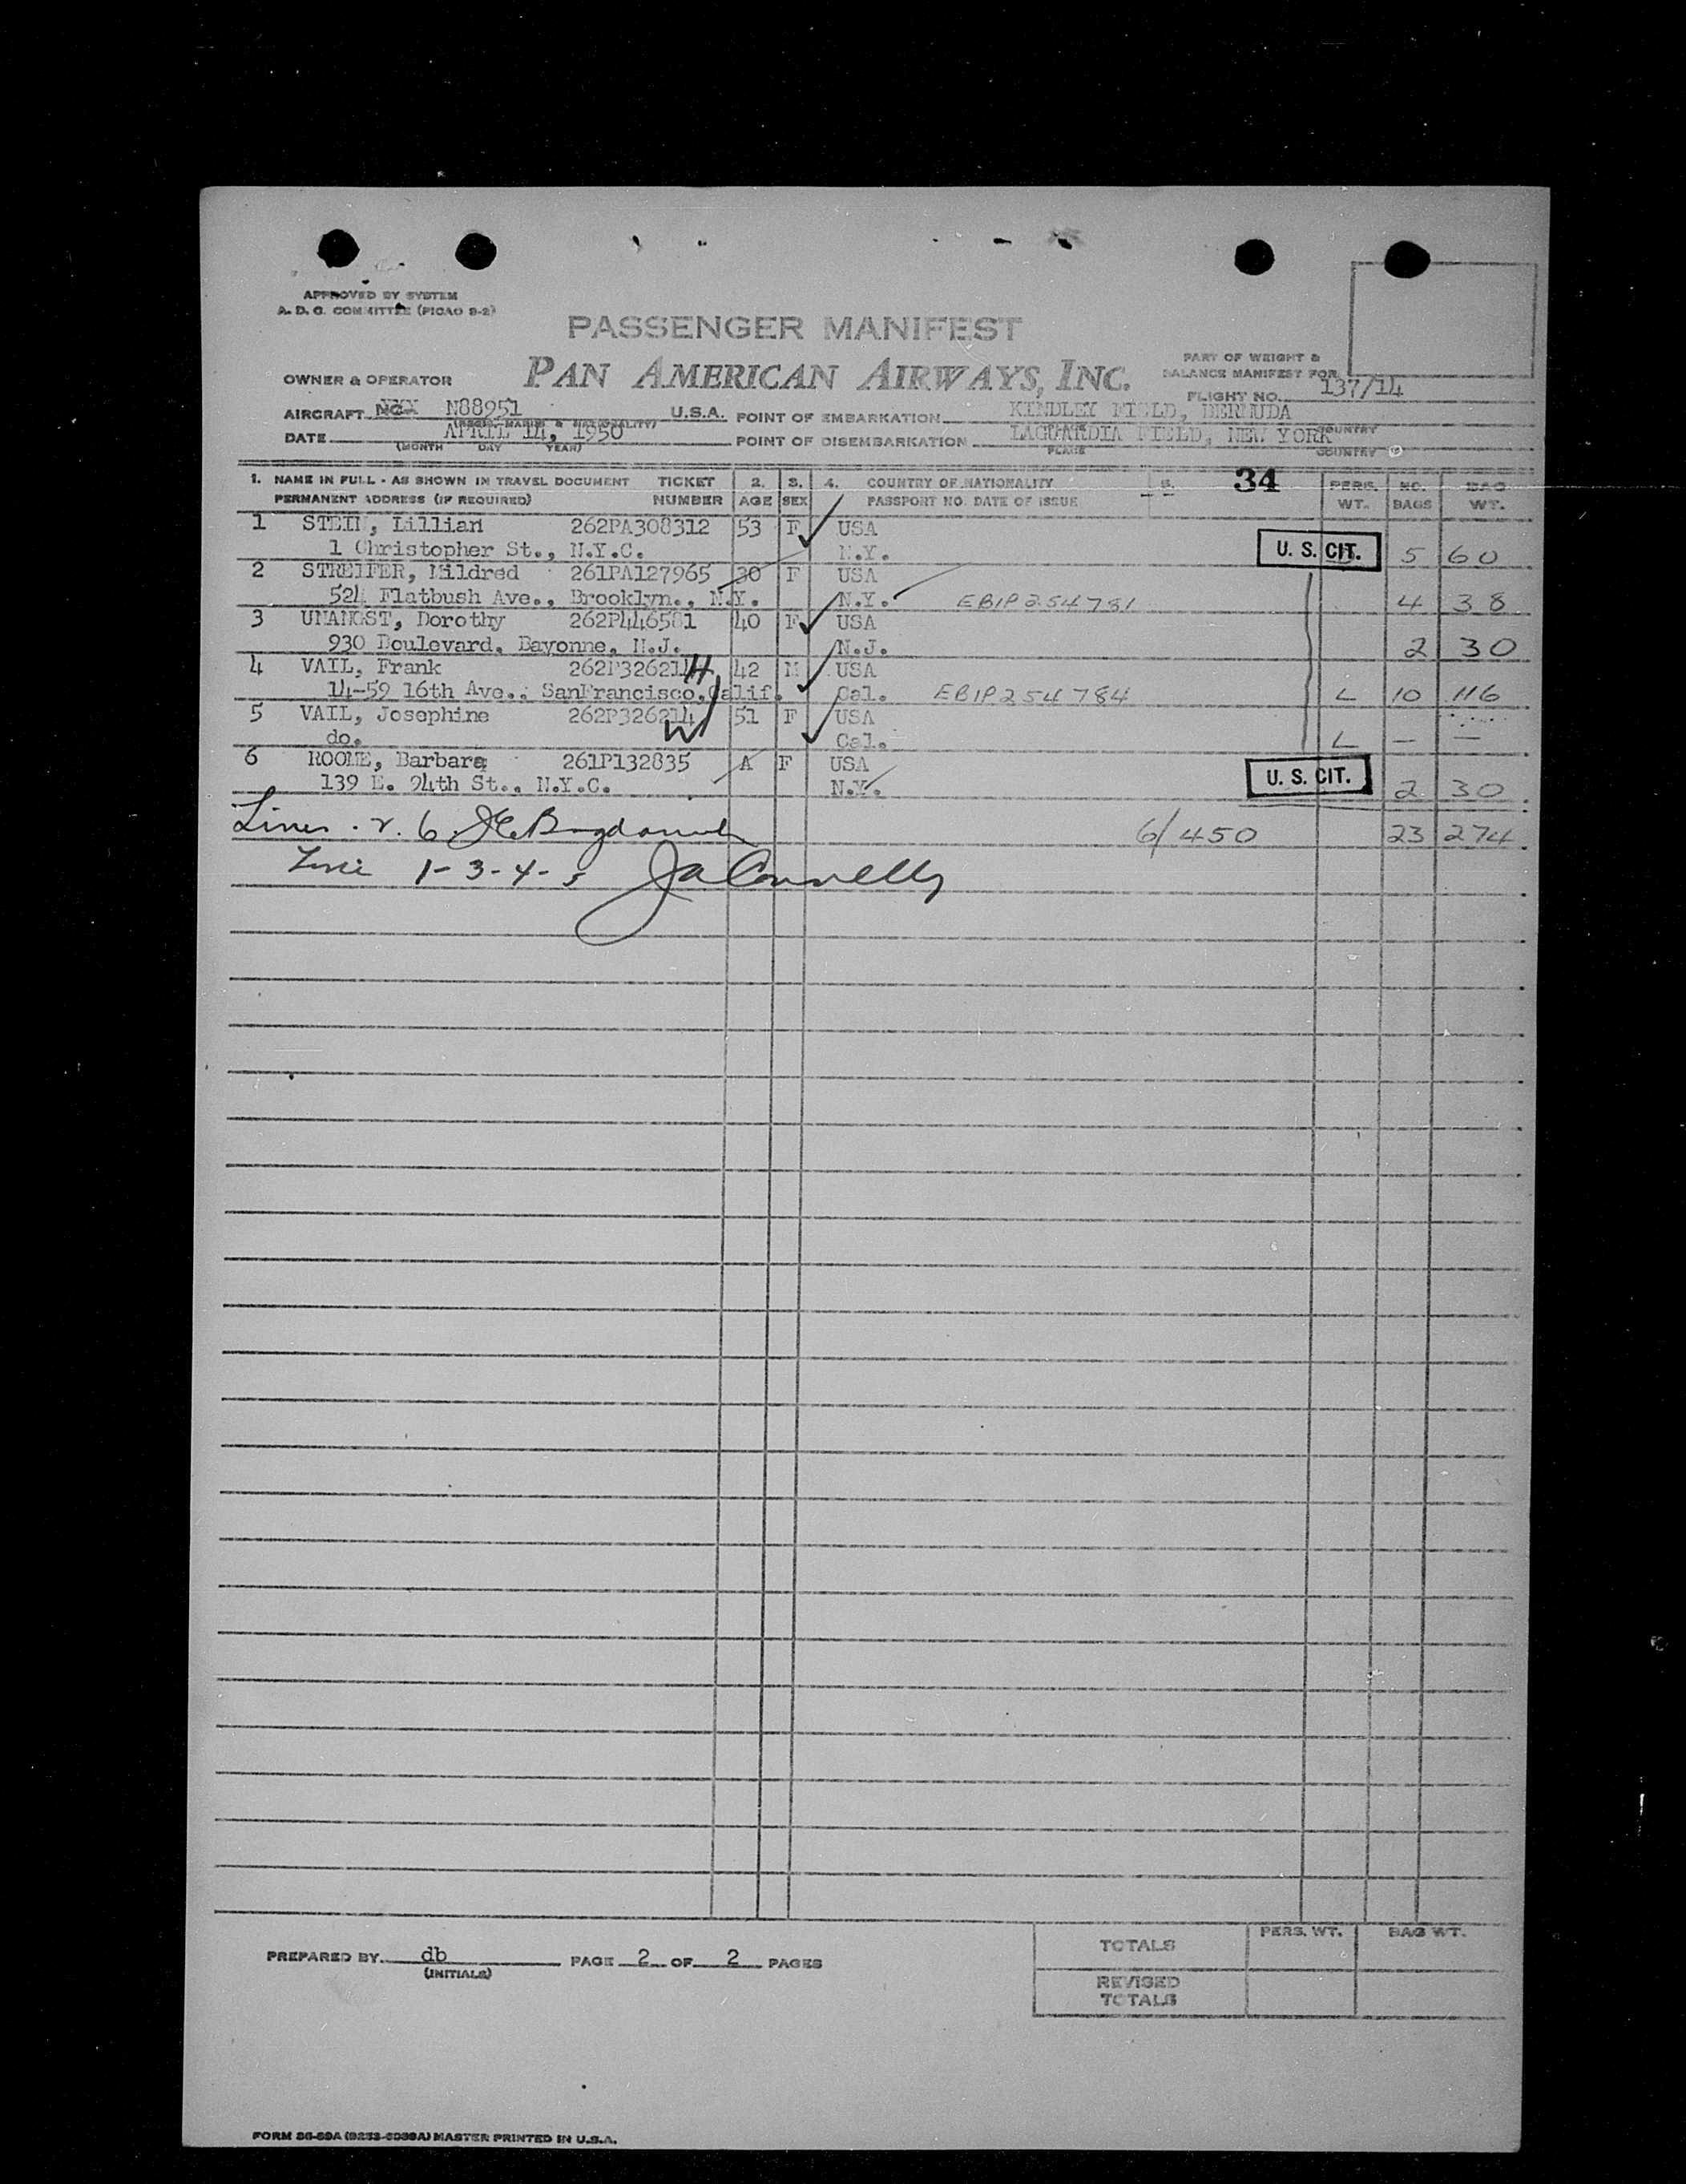 APPROVED BY SYSTEM
A. D. C. COMMITTEE (PICAO 9-2)
PASSENGER MANIFEST
OWNER & OPERATOR PAN AMERICAN AIRWAYS, INC.
PART OF WEIGHT &
BALANCE MANIFEST FOR
FLIGHT NO. 137/14
AIRCRAFT NO. N88951 U.S.A. POINT OF EMBARKATION KINDLEY FIELD, BERMUDA
COUNTRY
DATE APRIL 14, 1950 POINT OF DISEMBARKATION LAGUARDIA FIELD, NEW YORK
(MONTH DAY YEAR) PLACE COUNTRY
1. NAME IN FULL - AS SHOWN IN TRAVEL DOCUMENT TICKET 2. 3. 4. COUNTRY OF NATIONALITY 5. 34 PERS. NO. BAG
PERMANENT ADDRESS (IF REQUIRED) NUMBER AGE SEX PASSPORT NO. DATE OF ISSUE WT. BAGS WT.
1 Lillian 262PA308312 53 F USA
1 Christopher St., N.Y.C. N.Y. U. S. CIT. 5 60
2 STREIFER, Mildred 261PA127965 30 F USA
524 Flatbush Ave., Brooklyn., N.Y. N.Y. EBIP254781 4 38
3 UNANGST, Dorothy 262P446581 40 F USA
930 Boulevard, Bayonne, N.J. N.J. 2 30
4 VAIL, Frank 262P326214 42 M USA
14-59 16th Ave., SanFrancisco, Calif. Cal. EBIP254784 L 10 116
5 VAIL, Josephine 262P326214 51 F USA
do. Cal. L — —
6 ROOME, Barbara 261P132835 A F USA
139 E. 94th St., N.Y.C. N.Y. U. S. CIT. 2 30
6/450 23 274
Line 1-3-4-5 JA Connelly
TOTALS PERS. WT. BAG WT.
PREPARED BY db PAGE 2 OF 2 PAGES
(INITIALS)
REVISED
TOTALS
MASTER PRINTED IN U.S.A.